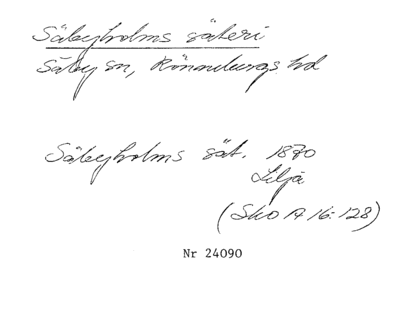 Säbyholms säteri
Säby sn, Rönnebergs hd
Säbyholms sät. 1870
Lilja
(Sko A 16:128)
Nr 24090